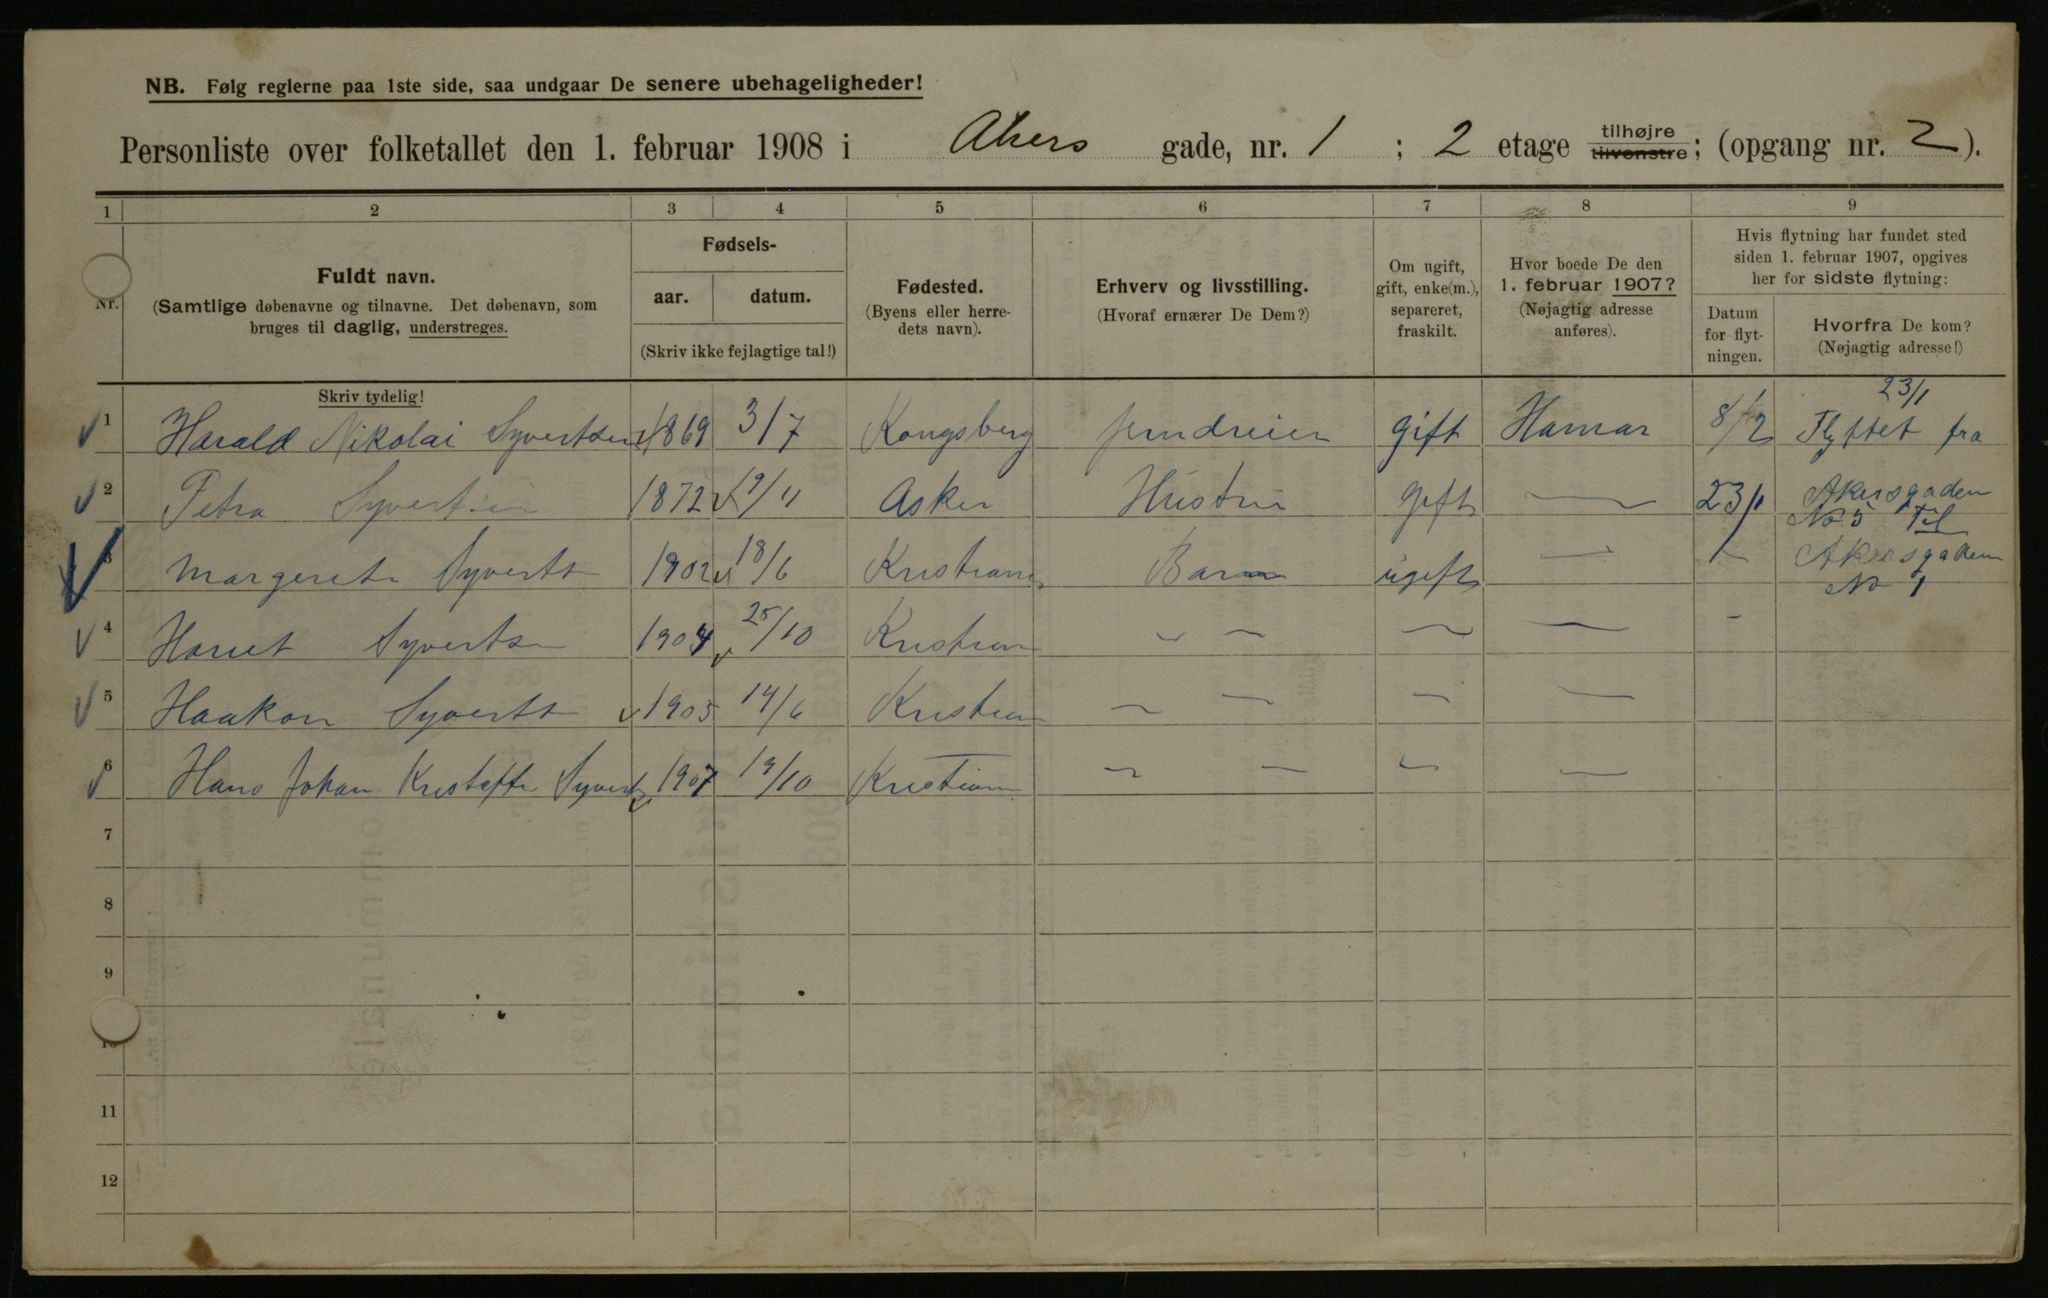 NB. Følg reglerne paa 1ste side, saa undgaar De senere ubehageligheder!
Personliste over folketallet den 1. februar 1908 i Akers gade, nr. 1 ; 2 etage tilhøjre tilvenstre; (opgang nr. 2).
1 2 3 4 5 6 7 8 9
Nr. Fuldt navn. (Samtlige døbenavne og tilnavne. Det døbenavn, som bruges til daglig, understreges.
Fødsels- aar. datum. (Skriv ikke fejlagtige tal!)
Fødested. (Byens eller herredets navn).
Erhverv og livsstilling. (Hvoraf ernærer De Dem?)
Om ugift, gift, enke(m.), separeret, fraskilt.
Hvor boede De den 1. februar 1907? (Nøjagtig adresse anføres).
Hvis flytning har fundet sted siden 1. februar 1907, opgives her for sidste flytning:
Datum for flytningen. Hvorfra De kom? (Nøjagtig adresse!)
Skriv tydelig!
1 Harald Nikolai Syvertsen 1869 3/7 Kongsberg jerndreier gift Hamar 8/2 23/1 Flyttet fra
2 Petra Syvertsen 1872 9/11 Asker Hustru Gift — 23/1 Akersgaden No 5 Til
3 Margerete Syverts 1902 18/6 Kristiania Barn ugift — – Akersgaden No 1
4 Syvertsen 1904 25/10 Kristian – – — — –
5 Haakon Syverts 1905 14/6 Kristian — — – —
6 Hans Johan Syverts 1907 19/10 Kristian – — – —
7
8
9
10
11
12